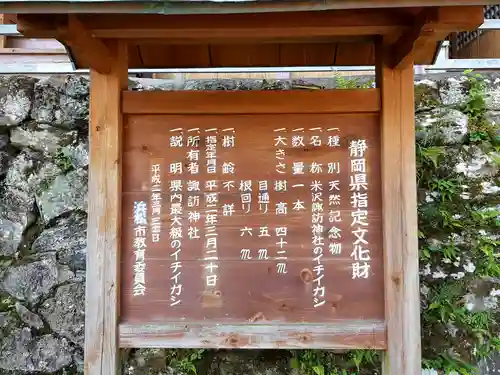 静岡県指定文化財
一種 別 天然記念物
一名 称 米沢諏訪神社のイチイガシ
一数 量 一本
一大きさ 樹 高 四十二m
目通り 五 m
根回り 六 m
一樹 齢 不 詳
一指定年月日 平成二年三月二十日
一所有者 諏訪神社
一説 明 県内最大級のイチイガシ
平成二年三月三十日
浜松市教育委員会